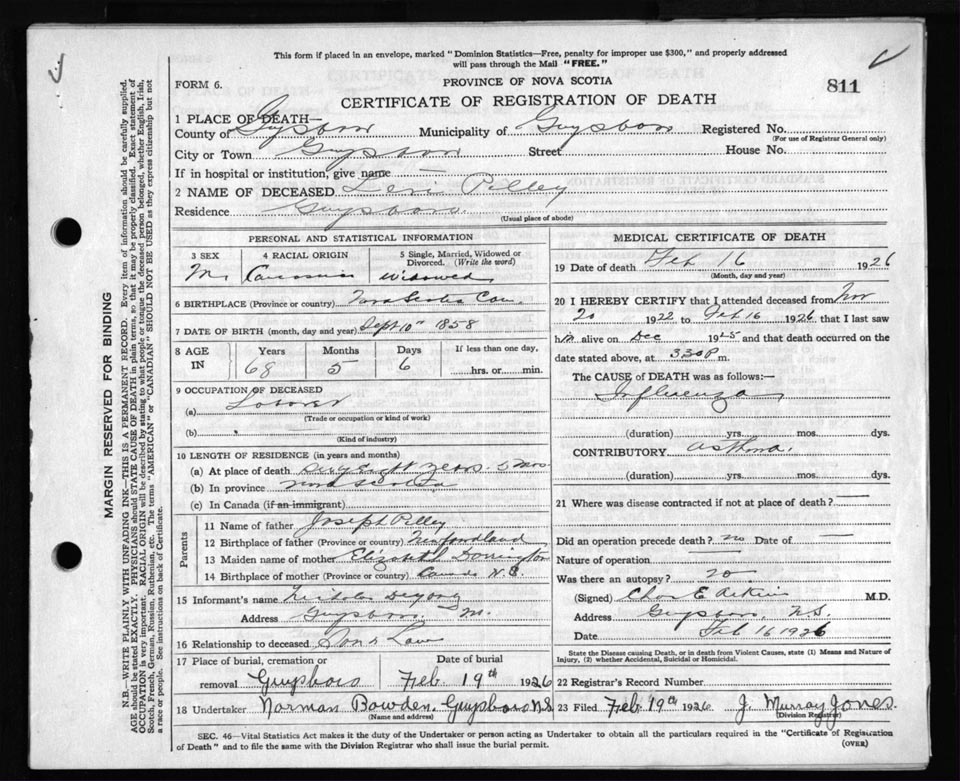 This form if placed in an envelope, marked "Dominion Statistics—Free, penalty for improper use $300," and properly addressed
will pass through the Mail "FREE."
FORM 6.
PROVINCE OF NOVA SCOTIA
811
CERTIFICATE OF REGISTRATION OF DEATH
1 PLACE OF DEATH—
County of Gysboro Municipality of Guysboro Registered No.
(For use of Registrar General only)
City or Town Guysboro Street House No.
If in hospital or institution, give name —
2 NAME OF DECEASED Levi Pelley
Residence Guysboro.
(Usual place of abode)
PERSONAL AND STATISTICAL INFORMATION
3 SEX 4 RACIAL ORIGIN 5 Single, Married, Widowed or Divorced. (Write the word)
M. widowed
6 BIRTHPLACE (Province or country) Nova Scotia Can.
7 DATE OF BIRTH (month, day and year) Sept 10th 1858
8 AGE IN Years Months Days If less than one day,
68 5 6 hrs. or min.
9 OCCUPATION OF DECEASED
(a)
(Trade or occupation or kind of work)
(b)
(Kind of industry)
10 LENGTH OF RESIDENCE (in years and months)
(a) At place of death eight years 5 mos
(b) In province Nova Scotia
(c) In Canada (if an immigrant)
Parents
11 Name of father Joseph Pelley
12 Birthplace of father (Province or country) Newfoundland
13 Maiden name of mother Elizabeth Donington
14 Birthplace of mother (Province or country) Canada N.S.
15 Informant's name
Address Guysboro
16 Relationship to deceased Son in Law
17 Place of burial, cremation or removal Guysboro Date of burial Feb. 19th 1926
18 Undertaker Norman Bowden, Guysboro N.S.
(Name and address)
MEDICAL CERTIFICATE OF DEATH
19 Date of death Feb 16 1926
(Month, day and year)
20 I HEREBY CERTIFY that I attended deceased from Nov
20 1922 to Feb 16 1926, that I last saw
him alive on Dec 1925 and that death occurred on the
date stated above, at 3.30 P m.
The CAUSE of DEATH was as follows:—
Influenza
(duration) yrs. mos. dys.
CONTRIBUTORY asthma.
(duration) yrs. mos. dys.
21 Where was disease contracted if not at place of death? —
Did an operation precede death? no Date of —
Nature of operation
Was there an autopsy? no
(Signed) Chas E Aitkins M.D.
Address Guysboro, N.S.
Date Feb 16 1926
State the Disease causing Death, or in death from Violent Causes, state (1) Means and Nature of Injury, (2) whether Accidental, Suicidal or Homicidal.
22 Registrar's Record Number
23 Filed Feb 19th 1926 J. Murray Jones.
(Division Registrar)
SEC. 46—Vital Statistics Act makes it the duty of the Undertaker or person acting as Undertaker to obtain all the particulars required in the "Certificate of Registration
of Death" and to file the same with the Division Registrar who shall issue the burial permit.
(OVER)
MARGIN RESERVED FOR BINDING
N.B.—WRITE PLAINLY WITH UNFADING INK—THIS IS A PERMANENT RECORD. Every item of information should be carefully supplied.
AGE should be stated EXACTLY. PHYSICIANS should STATE CAUSE OF DEATH in plain terms, so that it may be properly classified. Exact statement of
OCCUPATION is very important. RACIAL ORIGIN will be described by stating to what people or tongue the deceased person belonged, whether English, Irish,
Scotch, French, German, Russian, Ruthenian, etc. The terms "AMERICAN" or "CANADIAN" SHOULD NOT BE USED as they express citizenship but not
a race or people. See instructions on back of Certificate.